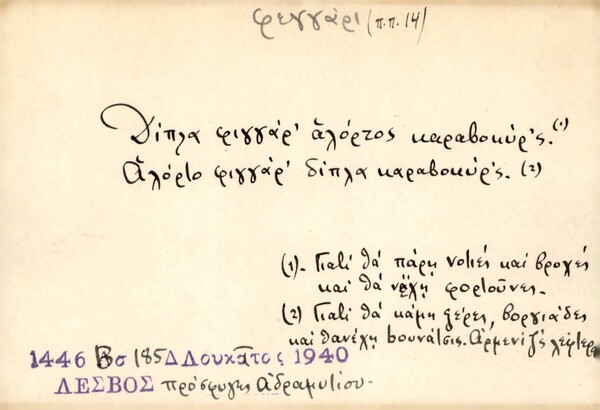 φεγγάρι (π.π. 14)
Δίπλα φιγγάρ' ἀλόρτος καραβοκύρ'ς. (1)
Ἀλόρτο φιγγάρ' δίπλα καραβοκύρ'ς. (2)
(1). Γιατί θά πάρῃ νοτιές καί βροχές
καί θά νἄχῃ φορτοῦνες.
(2) Γιατί θά κάμῃ ξέρες, βοργιάδες
καί θανἔχῃ βουνάτσις. Ἀρμενίζ'ς λέφτερα
1446 Βσ 185 Δ Λουκᾶτος 1940
ΛΕΣΒΟΣ πρόσφυγης Ἀδραμυτίου.